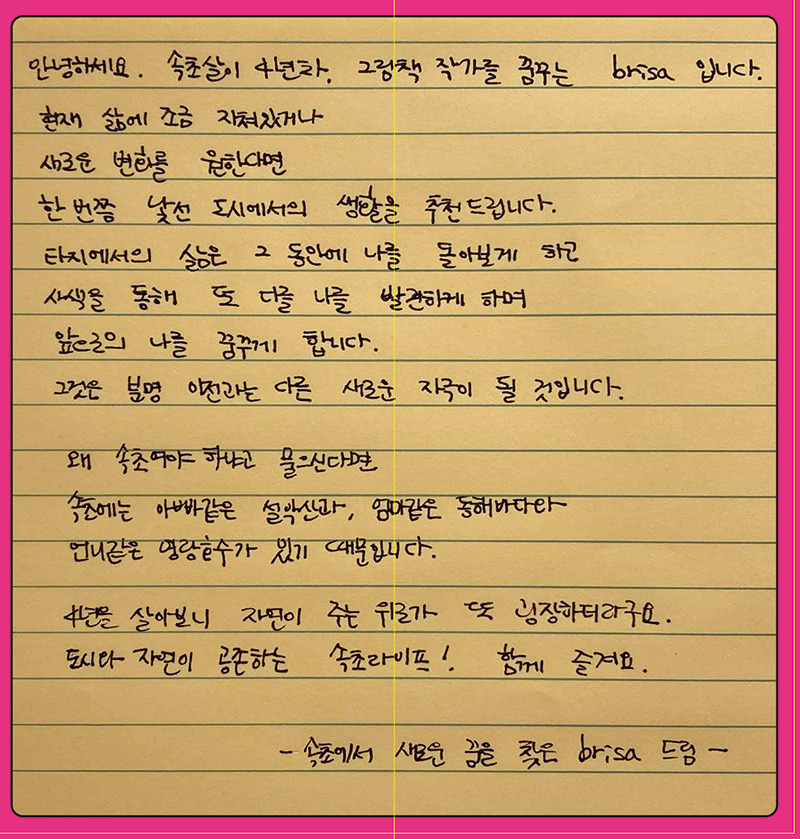 안녕하세요. 속초살이 4년차, 그림책 작가를 꿈꾸는 brisa 입니다.
현재 삶에 조금 지쳐있거나
새로운 변화를 원한다면
한 번쯤 낯선 도시에서의 생활을 추천드립니다.
타지에서의 삶은 그 동안에 나를 돌아보게 하고
사색을 통해 또 다를 나를 발견하게 하며
앞으로의 나를 꿈꾸게 합니다.
그것은 분명 이전과는 다른 새로운 자극이 될 것입니다.
왜 속초여야 하냐고 물으신다면
속초에는 아빠같은 설악산과, 엄마같은 동해바다와
언니같은 영랑호수가 있기 때문입니다.
4년을 살아보니 자연이 주는 위로가 또 굉장하더라구요.
도시와 자연이 공존하는 속초라이프! 함께 즐겨요.
- 속초에서 새로운 꿈을 찾은 brisa 드림 -